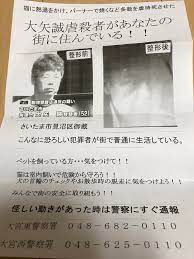 猫に熱湯をかけ、バーナーで焼くなど多数を虐待死させた
大矢誠虐殺者があなたの
街に住んでいる！！
整形前
整形後
(52)
さいたま市見沼区御蔵
こんなに恐ろしい犯罪者が街で普通に生活している。
ペットを飼っている方・・気をつけて！！
猫は室内飼いで危険から守ろう！！
犬の首輪のチェックやお散歩時の脱走に気をつけよう！
みんなで街の安全に取り組もう！！
怪しい動きがあった時は警察にすぐ通報
大宮東警察署 048-682-0110
大宮西警察署 048-625-0110